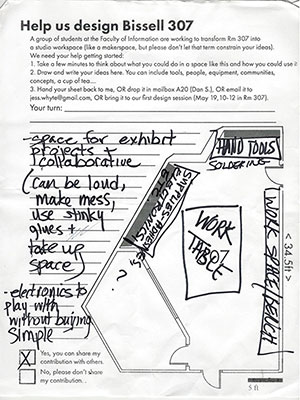 Help us design Bissell 307
A group of students at the Faculty of Information are working to transform Rm 307 into
a studio workspace (like a makerspace, but please don't let that term constrain your ideas).
We need your help getting started:
1. Take a few minutes to think about what you could do in a space like this and how you could use it
2. Draw and write your ideas here. You can include tools, people, equipment, communities,
concepts, a cup of tea...
3. Hand your sheet back to me, OR drop it in mailbox A20 (Dan S.), OR email it to
jess.whyte@gmail.com, OR bring it to our first design session (May 19, 10-12 in Rm 307).
Your turn:
-space for exhibit
projects +
collaborative
(can be loud,
make mess,
use stinky
glues +
take up
space)
-electronics to
play with
without buying
simple
HAND TOOLS
SOLDERING
SUPPLIES
WORK
TABLE
WORK SPACE/BENCH
< 34.5ft >
?
X
Yes, you can share my
contribution with others.
No, please don't share
my contribution. .
5 ft